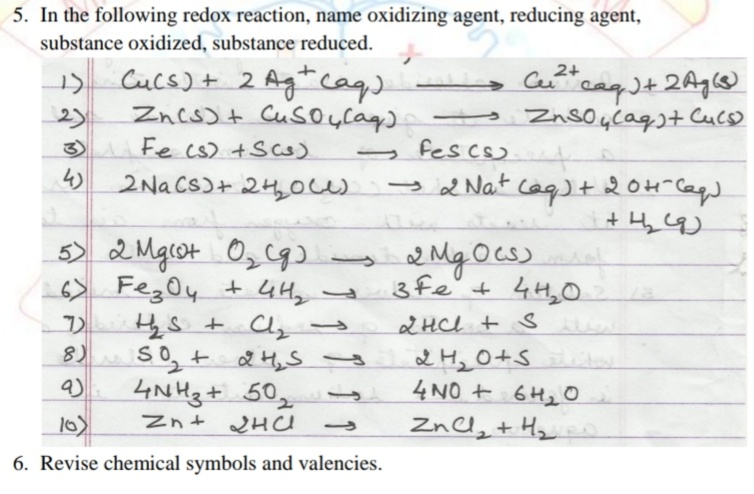 5. In the following redox reaction, name oxidizing agent, reducing agent,
substance oxidized, substance reduced.
1) Cu(s) + 2 Ag⁺(aq) ⟶ Cu²⁺(aq) + 2Ag(s)
2) Zn(s) + CuSO₄(aq) ⟶ ZnSO₄(aq) + Cu(s)
3) Fe(s) + S(s) ⟶ FeS(s)
4) 2Na(s) + 2H₂O(l) ⟶ 2Na⁺(aq) + 2OH⁻(aq)
+ H₂(g)
5) 2Mg(s) + O₂(g) ⟶ 2MgO(s)
6) Fe₃O₄ + 4H₂ ⟶ 3Fe + 4H₂O
7) H₂S + Cl₂ ⟶ 2HCl + S
8) SO₂ + 2H₂S ⟶ 2H₂O + S
9) 4NH₃ + 5O₂ ⟶ 4NO + 6H₂O
10) Zn + 2HCl ⟶ ZnCl₂ + H₂
6. Revise chemical symbols and valencies.